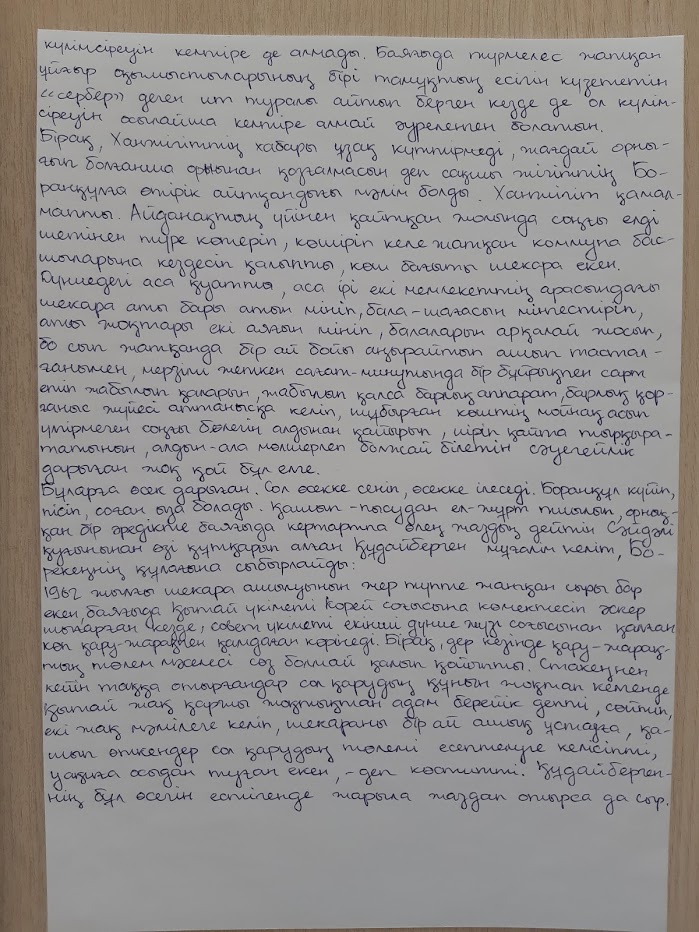 күлімсіреуін келтіре де алмады. Баяғыда түрмелес жатқан
ұйғыр қылмыстыларының бірі тамұқтың есігін күзететін
«сербер» деген ит туралы айтып берген кезде де ол күлім-
сіреуін осылайша келтіре алмай әурелеген болатын.
Бірақ, Хантжігіттің хабары ұзақ күттірмеді, жағдай орны-
ғып болғанша орнынан қозғалмасын деп сақшы жігіттің Бо-
ранқұлға өтірік айтқандығы мәлім болды. Хантжігіт қамал-
мапты. Айданақтың үйінен қайтқан жолында соңғы елді
шетінен түре көтеріп, көшіріп келе жатқан коммуна бас-
шыларына кездесіп қалыпты, көш бағыты шекара екен.
Дүниедегі аса қуатты, аса ірі екі мемлекеттің арасындағы
шекара аты бары атын мініп, бала-шағасын мінгестіріп,
аты жоқтары екі аяғын мініп, балаларын арқалай жосып,
бо сып жатқанда бір ай бойы аңырайтып ашып тастал-
ғанымен, мерзімі жеткен сағат-минутында бір бұйрықпен сарт
етіп жабылып қаларын, жабылып қалса барлық аппарат, барлық қор-
ғаныс жүйесі аттанысқа келіп, шұбырған көштің мойнақ асып
үлгірмеген соңғы бөлегін алдынан қайырып, иіріп қайта тырқыра-
татынын, алдын-ала мөлшерлеп болжай білетін сәуегейлік
дарыған жоқ қой бұл елге.
Бұларға өсек дарыған. Сол өсекке сеніп, өсекке ілеседі. Боранқұл күйіп,
пісіп, соған ыза болады. Қашып-пысудан ел-жұрт тиылып, орнық-
қан бір әредікте баяғыда кертартпа өлең жаздың дейтін Сәйдәлі
қуғынынан өзі құтқарып алған Құдайберген мұғалім келіп, Бо-
рекеңнің құлағына сыбырлайды:
1962 жылғы шекара ашылуының жер түпте жатқан сыры бар
екен, баяғыда Қытай үкіметі Корей соғысына көмектесіп әскер
шығарған кезде, совет үкіметі екінші дүние жүзі соғысынан қалған
көп қару-жарақпен қамдаған көрінеді. Бірақ, дер кезінде қару-жарақ-
тың төлем мәселесі сөз болмай қалып қойыпты. Стакеңнен
кейін таққа отырғандар сол қарудың құнын жоқтап келгенде
Қытай жақ қаржы жоқтықтан адам берейік депті, сөйтіп,
екі жақ мәмілеге келіп, шекараны бір ай ашық ұстауға, қа-
шып өткендер сол қарудың төлемі есептелуге келісіпті,
уақиға осыдан туған екен, - деп көсіпті. Құдайберген-
нің бұл өсегін естігенде жарыла жаздап отырса да сыр.